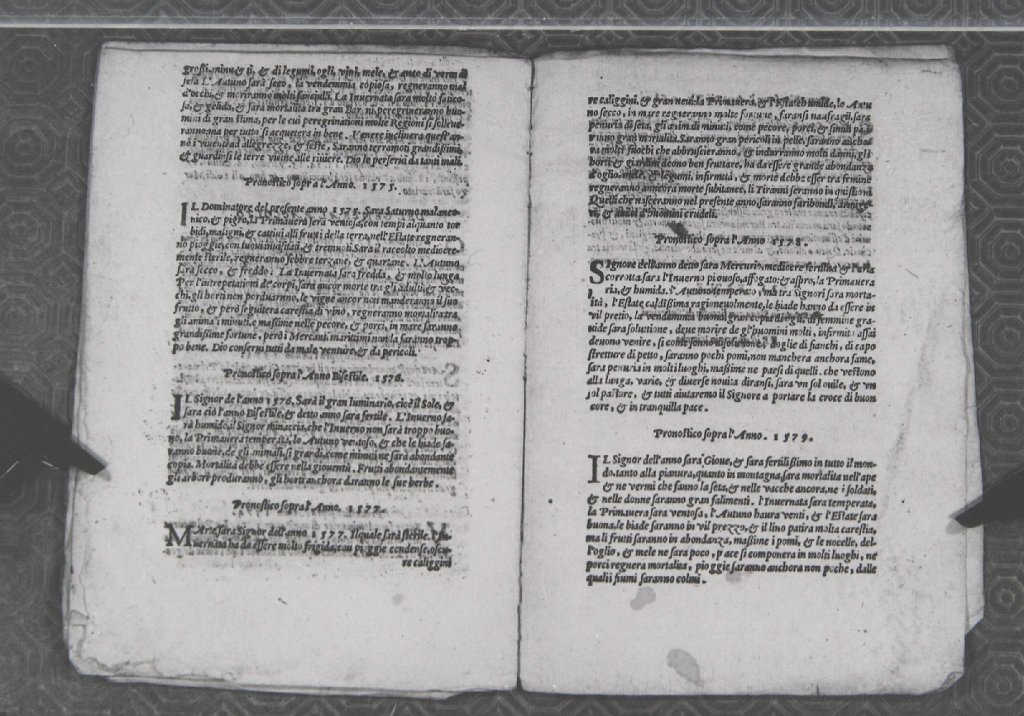 grossi, minuti, & di legumi, ogli, vini, mele, & anto di vermi di
seta L'Autuno sarà seco, la vendemmia copiosa, regneranno mal
& vecchi, & moriranno molti fanciulli. La Inuernata sara molto
sa, & gelida, & sarà mortalità tra gran Bar, ni, peregneranno huo-
mini di gran stima, per le cui peregrinationi molte Regioni si solleue-
ranno, ma per tutto si acquetera in bene. Venere inclinera quest'an-
no i viuenti ad allegrezze, & feste, Saranno terramoti grandissimi,
& guardinsi le terre vicine alle riuiere. Dio le perserui da tanti mali.
Pronostico sopra l'Anno. 1575.
IL Dominatore del presente anno 1575. Sara Saturno malanco-
nico, & pigro, la Primauera serà ventosa, con tempi alquanto tor
bidi, maligni, & cattiui alli frutti della terra, nell'Estate regneran-
no pioggie, con tuoni inusitati, & tremuoti. Sarà il racolto mediocre-
mente sterile, regneranno febbre terzane, & quartane. L'Autuno
sarà secco, & freddo: La Inuernata sarà fredda, & molto lunga
Per l'intrepetatiõ de'corpi, sarà ancor morte tra gli adulti, & vec-
chi, gli horti non porduarnno, le vigne ancor non manderanno il suo
frutto, & però seguiterà carestia di vino, regneranno mortalita tra
gli animai minuti, & massime nelle pecore, & porci, in mare saranno
grandissime fortune, però i Mercanti maritimi non la faranno trop-
po bene. Dio conserui tutti da male venture, & da pericoli.
Pronostico sopra l'Anno Bisestile. 1576.
IL Signor de l'anno 1576. Sarà il gran luminario, cioè il Sole, &
sara ciò l'anno Bisestile, & detto anno sara fertile. L'Inuerno sa-
rà humido, il Signor minaccia, che l'Inuerno non sarà troppo buo-
no, la Primauera temperata, lo Autuno ventoso, & che le biade sa-
ranno buone, de gli animali, si grandi, come minuti ne sarà abondante
copia. Mortalità debbe essere nella giouentù. Frutti abondantemente
gli arbori produranno, gli horti anchora daranno le sue herbe.
Pronostico sopra l'Anno. 1577.
MArte sara Signor dell'anno 1577. Il quale sarà sterile. l'In-
uernata ha da essere molto frigida, con pioggie condense, oscu-
re caliggini
re caliggini, & gran neui: la Primauera, & l'Estate humide, lo Autu
no secco, in mare regneranno molte fortune, faransi naufragii, sarà
penuria di seta, gli animali minuti, come pecore, porci, & simili pati
ran gran mortalità. Saranno gran pericoli in pelle, saranno ancho
ra molti fuochi che abbrusciranno, & indurranno molti danni, gli
horti & giardini deono ben fruttare, ha da essere grande abondanza
d'oglio, mele, & legumi, infirmità, & morte debbe esser tra femine
regneranno anncora morte subitanee, li Tiranni seranno in questioni
Quelli che nasceranno nel presente anno, saranno furibondi,
vi, & amari a huomini crudeli.
Pronostico sopra l'Anno 1578.
SIgnore dell'anno detto sara Mercurio, mediocre fertilità & l'aria
corrotta sara l'Inuerno piouoso, affogato: & aspro, la Primauera
ria, & humida. l'Autuno temperato, ma tra Signori sara morta-
ità, l'Estate caldissima ragioneuolmente, le biade hanno da essere in
vil pretio, la vendemmia buona, gran copia di ogli, di femmine gra-
uide sara solutione, deue morire de gl'huomini molti, infirmità assai
deuono venire, si come sonno dissolutione, doglie di fianchi, di capo
stretture di petto, saranno pochi pomi, non manchera anchora fame,
sara penuria in molti luoghi, massime ne paesi di quelli. che vestono
alla lunga, varie, & diuerse nouita diransi, sara vn sol ouile, & vn
sol pastore, & tutti aiutaremo il Signore a portare la croce di buon
core, & in tranquilla pace.
Pronostico sopra l'Anno. 1579.
IL Signor dell'anno sarà Gioue, & sara fertilissimo in tutto il mon-
do, tanto alla pianura, quanto in montagna, sara mortalità nell'ape
& ne vermi che fanno la seta, & nelle vacche ancora, ne i soldati,
& nelle donne saranno gran falimenti. l'Inuernata sara temperata,
la Primauera sara ventosa, l'Autuno haura venti, & l'Estate sara
buona, le biade saranno in vil prezzo, & il lino patira molta carestia,
ma li frutti saranno in abondanza, massime i pomi, & le nocelle, del-
l'oglio, & mele ne sara poco, pace si componera in molti luoghi, ne
porci regnera mortalita, pioggie saranno anchora non poche, dalle
quali i fiumi saranno colmi.